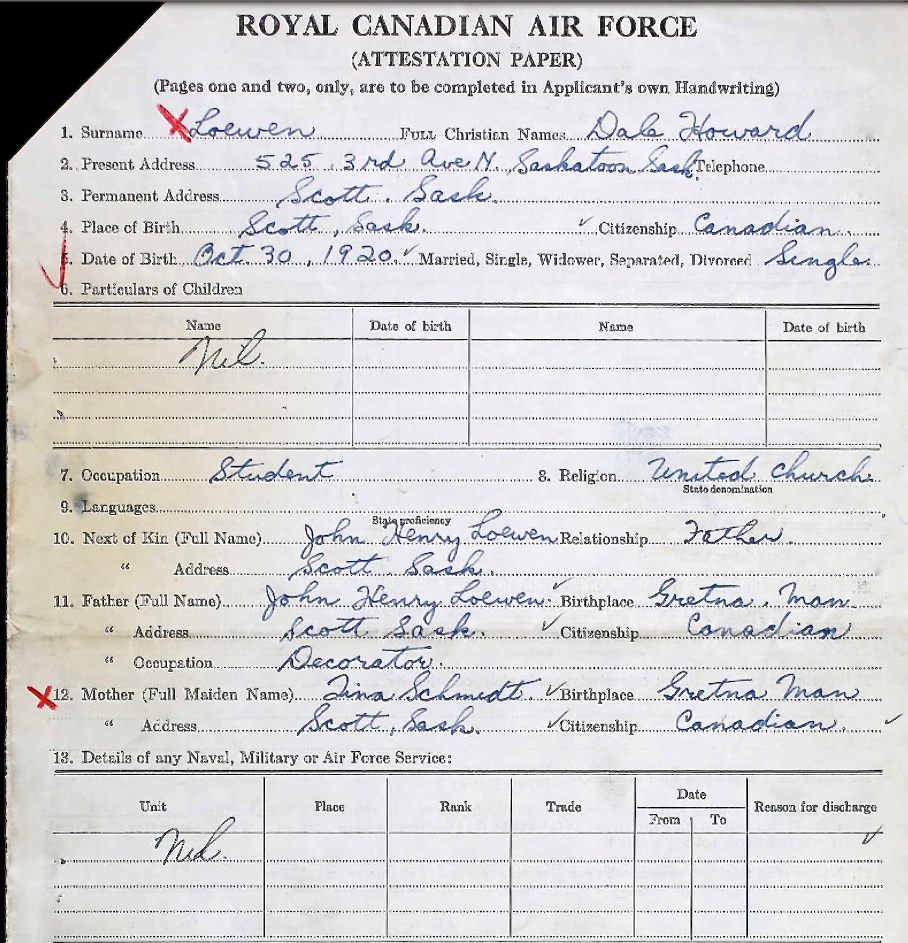 ROYAL CANADIAN AIR FORCE
(ATTESTATION PAPER)
(Pages one and two, only, are to be completed in Applicant's own Handwriting)
1. Surname Loewen FULL Christian Names Dale Howard
2. Present Address 525 3rd Ave N. Saskatoon Sask. Telephone
3. Permanent Address Scott. Sask.
4. Place of Birth Scott, Sask. Citizenship Canadian
5. Date of Birth Oct 30, 1920. Married, Single, Widower, Separated, Divorced Single
6. Particulars of Children
Name Date of birth Name Date of birth
Nil.
7. Occupation Student 8. Religion United Church
State denomination
9. Languages
State proficiency
10. Next of Kin (Full Name) John Henry Loewen Relationship Father.
" Address Scott Sask.
11. Father (Full Name) John Henry Loewen. Birthplace Gretna. Man
" Address Scott Sask. Citizenship Canadian
" Occupation Decorator.
12. Mother (Full Maiden Name) Tina Schmidt Birthplace Gretna Man
" Address Scott, Sask. Citizenship Canadian
13. Details of any Naval, Military or Air Force Service:
Unit Place Rank Trade Date Reason for discharge
From To
Nil.